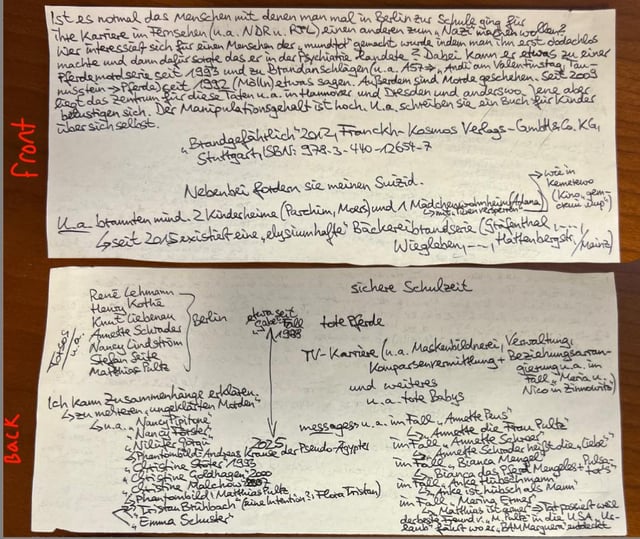 front
Ist es normal das Menschen mit denen man mal in Berlin zur Schule ging für
ihre Karriere im Fernsehen (u.a. NDR u. RTL) einen anderen zum "Nazi" machen wollen?
Wer interessiert sich für einen Menschen der "mundtot" gemacht wurde indem man ihn erst obdachlos
machte und dann dafür sorgte das er in der Psychiatrie landete? Dabei kann er etwas zu einer
Pferdemordserie seit 1993 und zu Brandanschlägen (u.a. "Andi" am Valentinstag,
→ Pferde) seit 1992 (Mölln) etwas sagen. Außerdem sind Morde geschehen. Seit 2009
liegt das Zentrum für diese Taten u.a. in Hannover und Dresden und anderswo. Jene aber
belustigen sich. Der Manipulationsgehalt ist hoch. U.a. schreiben sie ein Buch für Kinder
über sich selbst.
"Brandgefährlich" 2012, Franckh-Kosmos Verlags-GmbH & Co. KG,
Stuttgart, ISBN: 978-3-440-12654-7
Nebenbei fordern sie meinen Suizid.
→ wie in
Kemerowo
(Kino,
U.a. brannten mind. 2 Kinderheime (Parchim, Moers) und 1 Mädchenwohnheim (Adana
↳ mit Türen versperren
↳ seit 2015 existiert eine "elysiumhafte" Bäckereibrandserie (Gräfenthal,
Wiegleben, --, Hattenbergstr./Mainz)
Back
René Lehmann
Henry Kothe
Knut Liebenau
Annette Schrader
Nancy Lindström
Stefan Seite
Matthias Pultz
Berlin
u.a.
sichere Schulzeit
etwa seit
Fall
1998
2025
tote Pferde
TV-Karriere (u.a. Maskenbildnerei, Verwaltung,
Komparsenvermittlung + Beziehungsarran-
gierung u.a. im
Fall "Maria u.
Nico in Zinnowitz")
und weiteres
u.a. tote Babys
Ich kann Zusammenhänge erklären
↳ zu mehreren "ungeklärten Morden"
↳ u.a. "Nancy
"Nancy Förster"
"Phantombild: Andreas Krause der Pseudo-Ägypter
"Christine 1993
"Christine
"Christine
"Phantombild: Matthias Pultz
"Tristan Brübach" (eine Intention?: Flora Tristan)
"Emma Schuster"
messages u.a. im Fall "Annette Pens"
→ Annette die Frau Pultz
im Fall "Annette
↳ Annette heißt die "Liebe"
im Fall "Bianca Mengel"
↳ Bianca das Pferd Mengeles +
im Fall "Anke Hübschmann"
↳ Anke ist hübsch als Mann
im Fall "Marina Ermer"
↳ Matthias ist → Tat passiert weil
der beste Freund v. "M. Pultz" in die USA, Ur-
laub fährt wo er